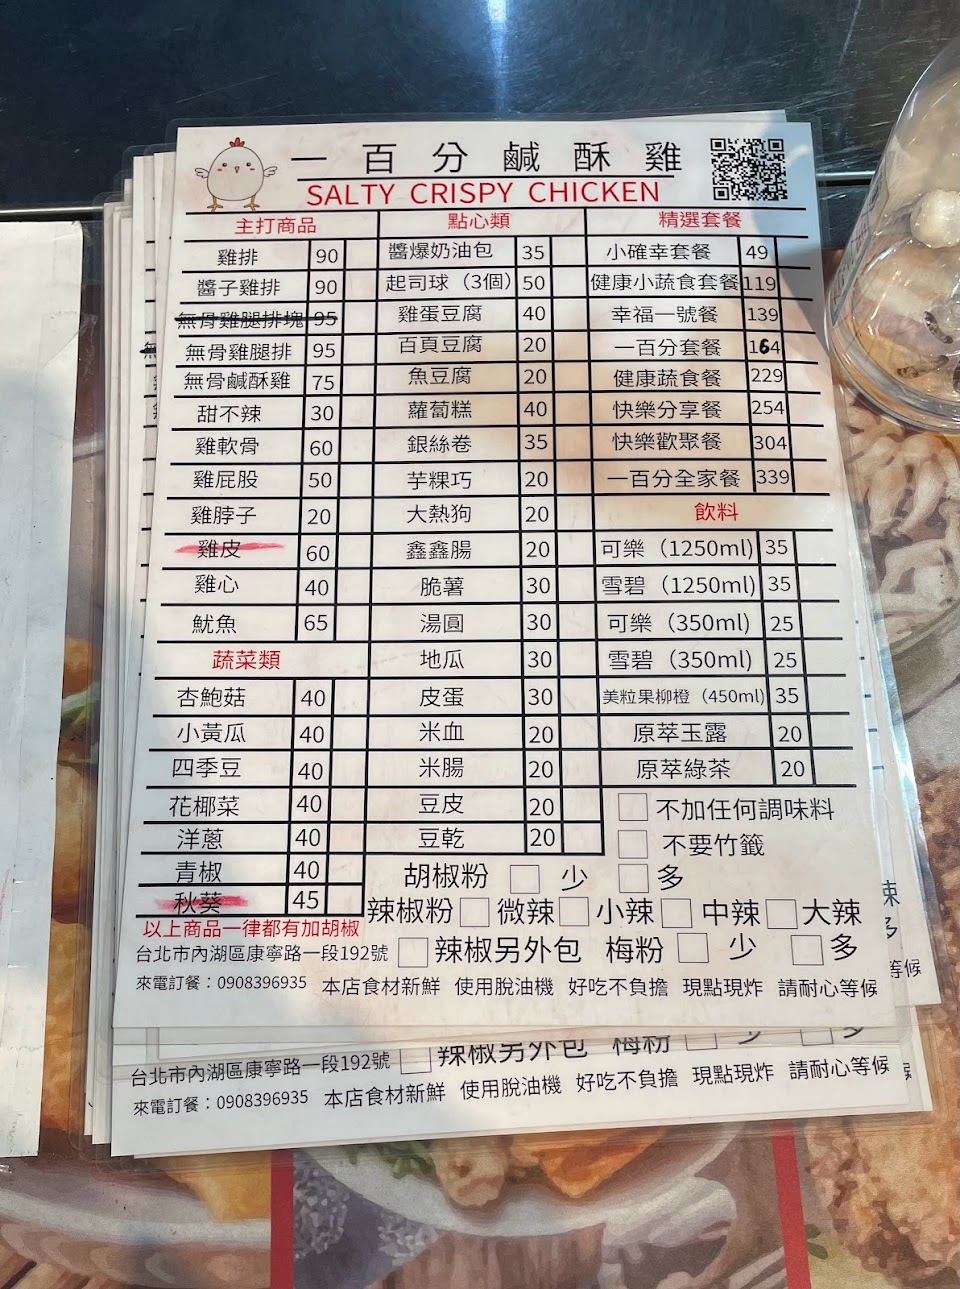 一百分鹹酥雞
SALTY CRISPY CHICKEN
主打商品
雞排 90
醬子雞排 90
無骨雞腿排塊 95
無骨雞腿排 95
無骨鹹酥雞 75
甜不辣 30
雞軟骨 60
雞屁股 50
雞脖子 20
雞皮 60
雞心 40
魷魚 65
蔬菜類
杏鮑菇 40
小黃瓜 40
四季豆 40
花椰菜 40
洋蔥 40
青椒 40
秋葵 45
點心類
醬爆奶油包 35
起司球（3個） 50
雞蛋豆腐 40
百頁豆腐 20
魚豆腐 20
蘿蔔糕 40
銀絲卷 35
芋粿巧 20
大熱狗 20
鑫鑫腸 20
脆薯 30
湯圓 30
地瓜 30
皮蛋 30
米血 20
米腸 20
豆皮 20
豆乾 20
精選套餐
小確幸套餐 49
健康小蔬食套餐 119
幸福一號餐 139
一百分套餐 164
健康蔬食餐 229
快樂分享餐 254
快樂歡聚餐 304
一百分全家餐 339
飲料
可樂（1250ml） 35
雪碧（1250ml） 35
可樂（350ml） 25
雪碧（350ml） 25
美粒果柳橙（450ml） 35
原萃玉露 20
原萃綠茶 20
不加任何調味料
不要竹籤
胡椒粉 少 多
辣椒粉 微辣 小辣 中辣 大辣
以上商品一律都有加胡椒
台北市內湖區康寧路一段192號 辣椒另外包 梅粉 少 多
來電訂餐：0908396935 本店食材新鮮 使用脫油機 好吃不負擔 現點現炸 請耐心等候
辣
多
等候
台北市內湖區康寧路一段192號 辣椒另外包 梅粉 少 多
來電訂餐：0908396935 本店食材新鮮 使用脫油機 好吃不負擔 現點現炸 請耐心等候